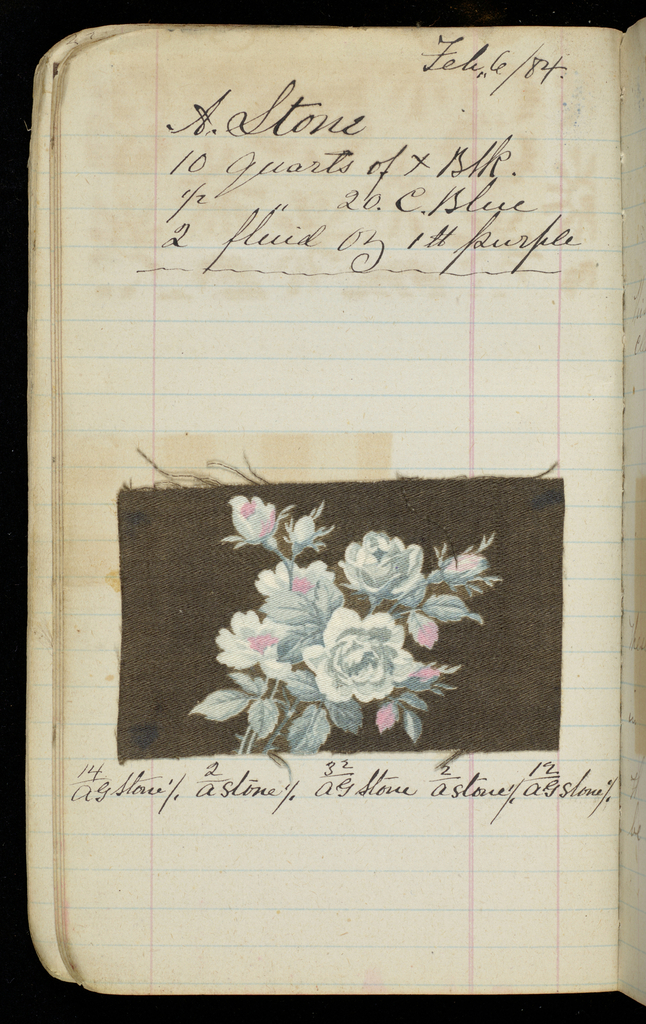 Feb, 6/84.
A. Stone
10 quarts of X Blk.
1/2 " 20. C. Blue
2 fluid oz 1# purple
14 2 32 2 12
AG Stone % A Stone % AG Stone A Stone % AG Stone %